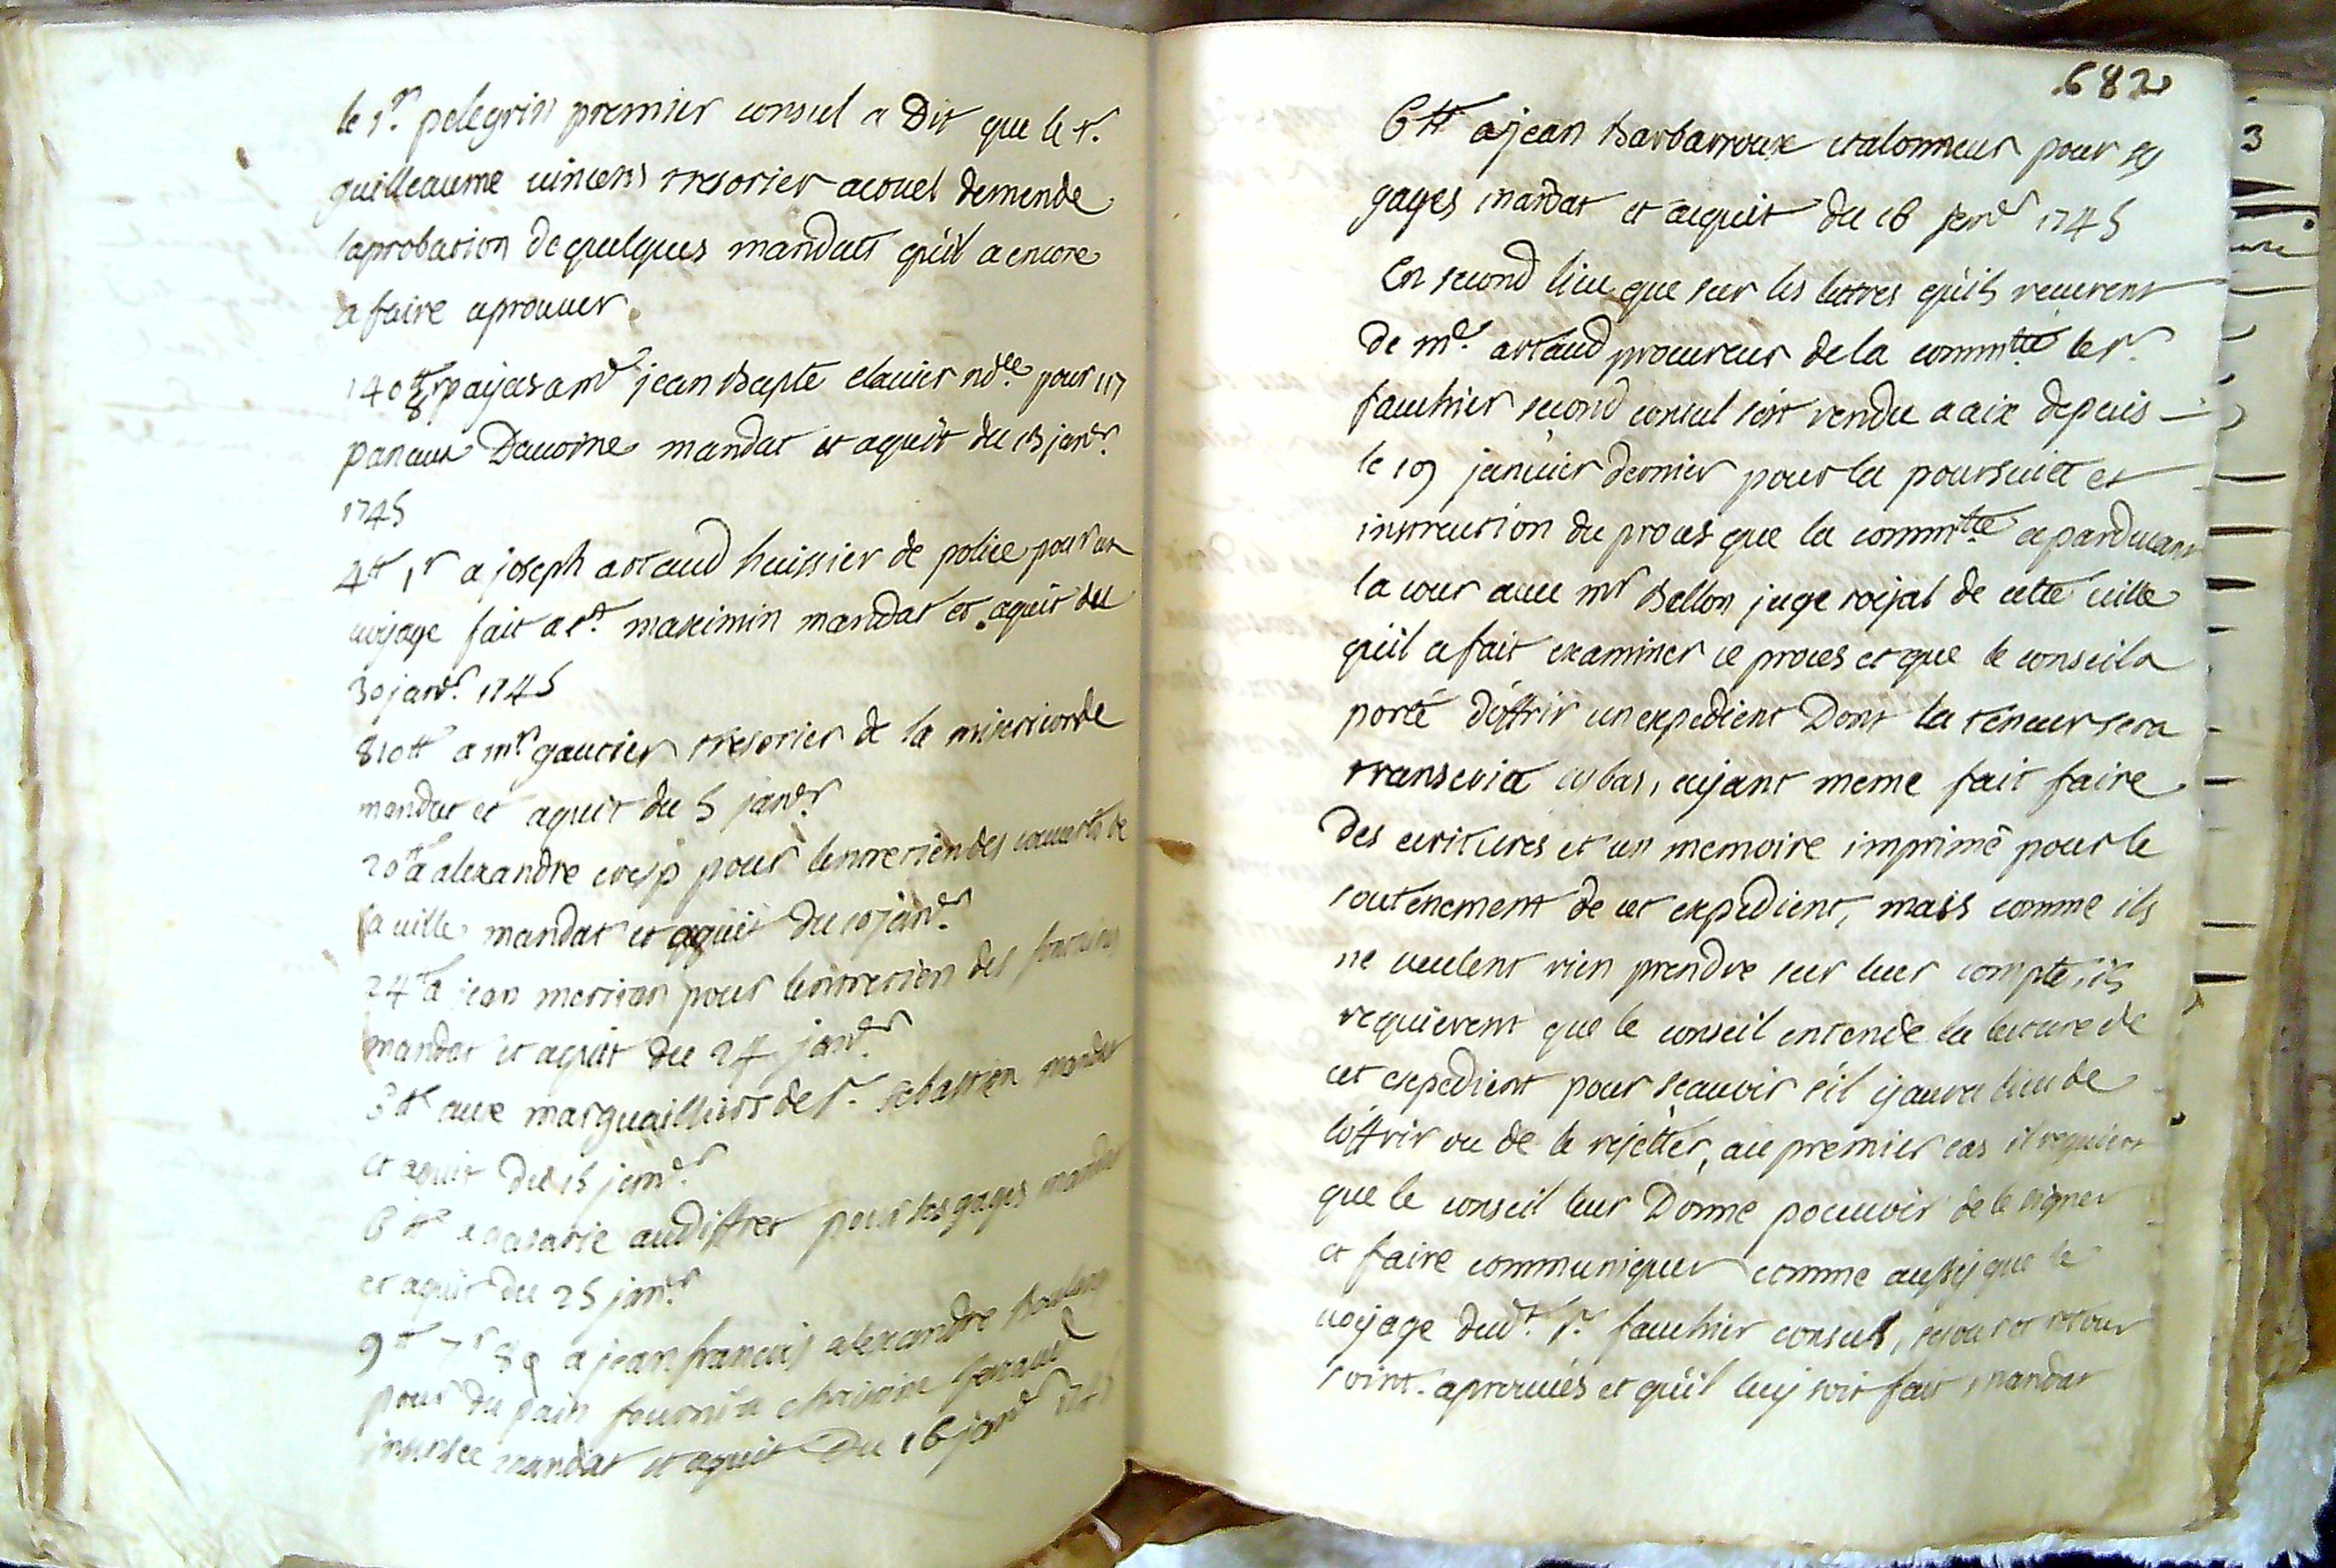 le sr. pelegrin premier consul a Dit que le sr.
guilleaume vincens tresorier acouel demende
laprobation de quelques mandats qu'il a encore
a faire aprouver.
140 payes a mr jean Bapte clavier ndre pour 117
panaux Davoine mandat et aquit du 13 janer.
1745
4tt 1s a joseph artaud huissier de police pour un
voyage fait a st. maximin mandat et aquit du
30 janer. 1745
810tt a mr gautier tresorier de la misericorde
mandat et aquit du 5 janer
20tt a alexandre cresp pour lentretien des couverts de
la ville mandat et aquit du 10 janer
24tt a jean meritan pour lentretien des
mandat et aquit du 24 janer.
3tt aux marguailliers de st. sebastien mandat
et aquit du 15 janer.
6tt a audiffret pour ses gages mandat
et aquit du 25 janer
9tt 7s 8d a jean francois alexandre
pour du pain fourni a feraud
insensée mandat et aquit du 16 janer
682
6tt a jean Barbarroux etalonneur pour ses
gages mandat et aiquit du 16 janer 1745
En second lieu que sur les lettres qu'ils receurent
de me. artaud procureur de la commtté le sr.
fauchier second consul s'est rendu a aix depuis
le 19 janvier dernier pour la poursuitte et
instruction du proces que la commtté a pardevant
la cour avec mr Bellon juge royal de cette ville
qu'il a fait examiner ce proces et que le conseil a
porté d'offrir un expedient Dont la teneur sera
transcritte cy bas, ayant meme fait faire
des ecritures et un memoire imprimé pour le
soutenement de cet expedient, mais comme ils
ne veulent rien prendre sur leur compte, ils
requierent que le conseil entende la lecture de
cet expedient pour scauvoir s'il y aura lieu de
l'offrir ou de le rejetter, au premier cas il requiert
que le conseil leur Donne pouvoir de le signer
et faire communiquer comme aussy que le
voyage dudt. sr. fauchier consul, sejour et retour
soint aprouvés et qu'il luy soit fait mandat
3